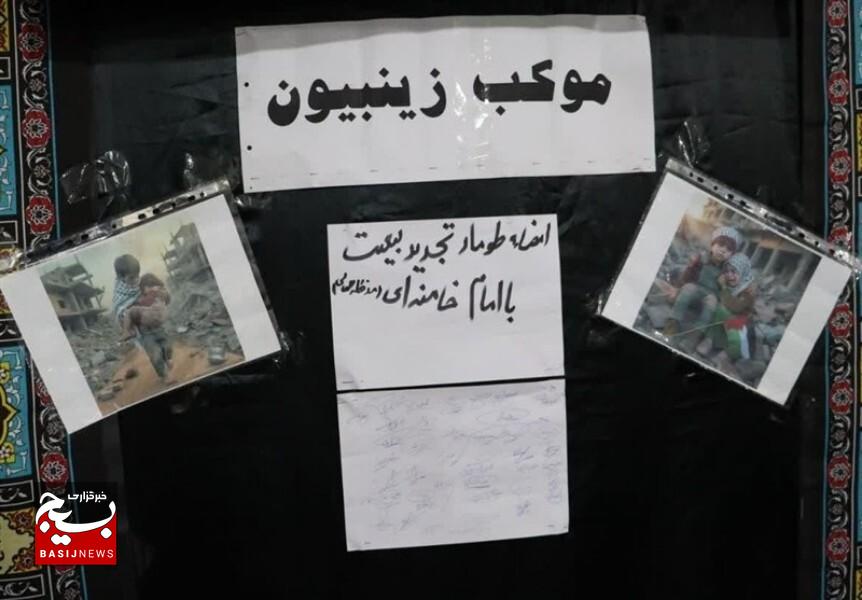 موکب زینبیون
امضاء طومار تجدید بیعت
با امام خامنه‌ای (مدظله‌العالی)
خبرگزاری
بسیج
BASIJNEWS